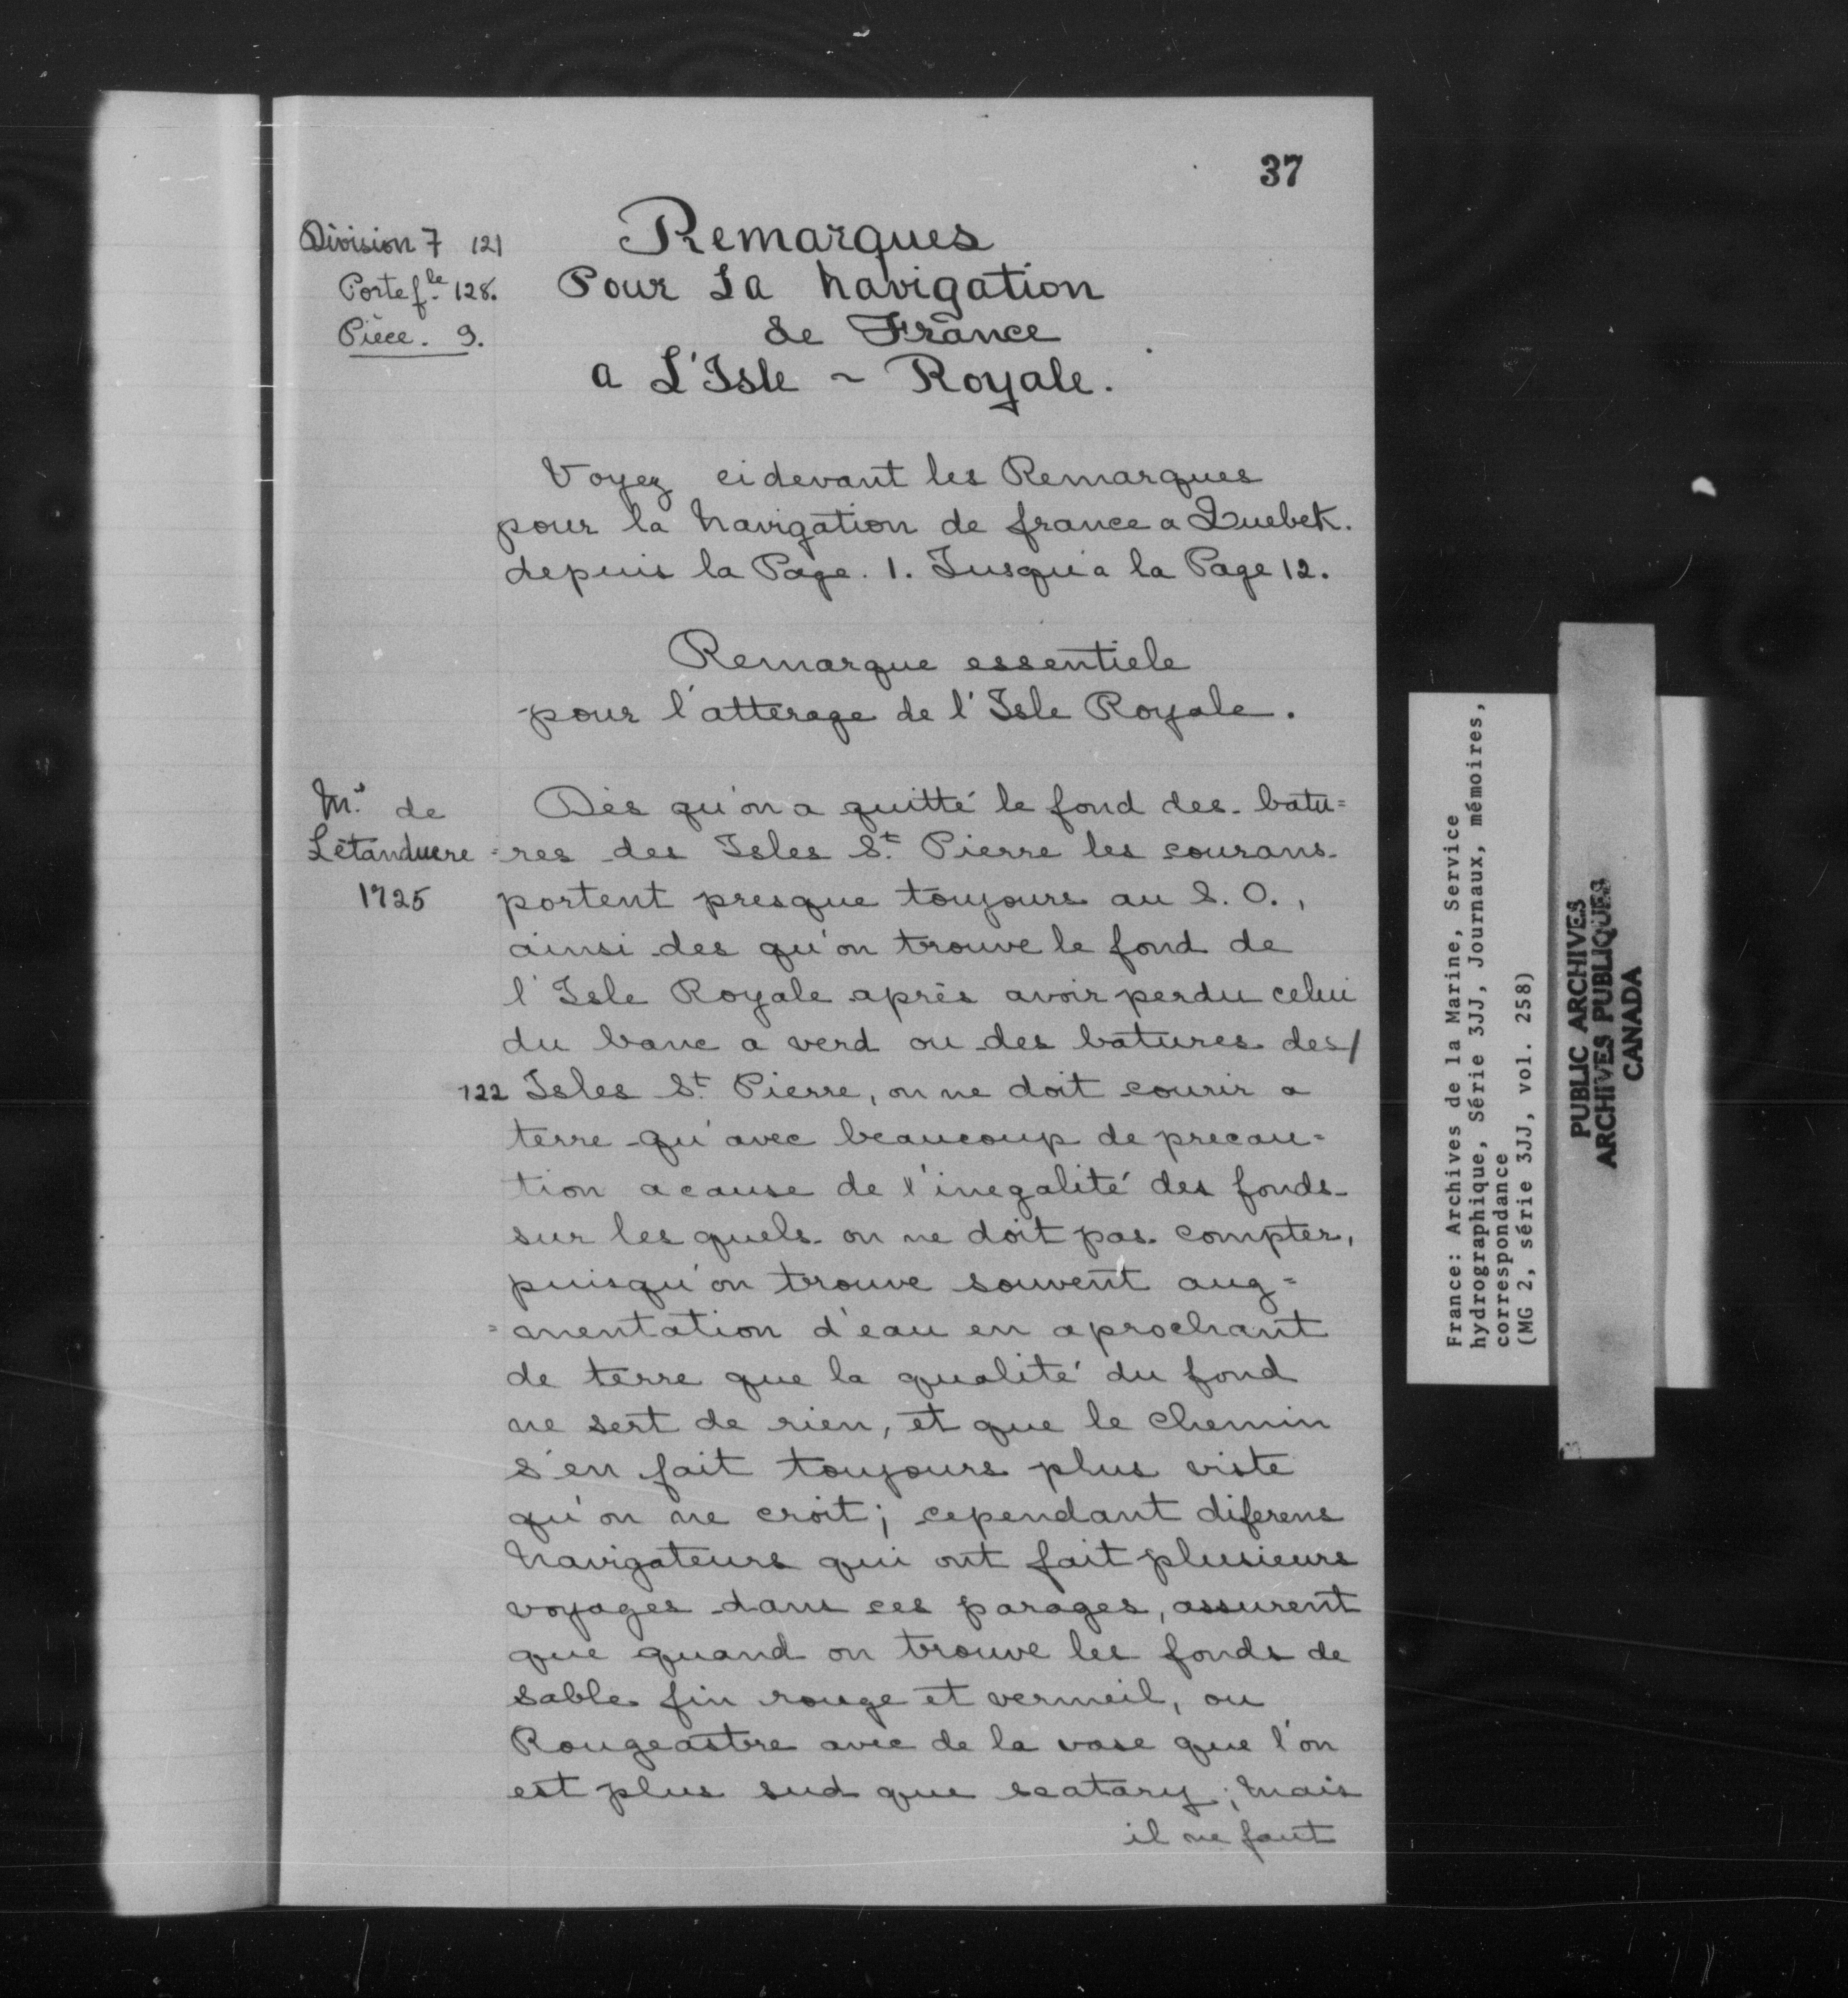 37
Division 7 121
Portef.le 128.
Pièce. 9.
Remarques
Pour La Navigation
de France
a L'Isle ~ Royale.
Voyez cidevant les Remarques
pour la Navigation de france a Quebek.
depuis la Page. 1. Jusqu'a la Page 12.
Remarque essentiele
pour l'atterage de l'Isle Royale.
Mr. de
Létanduere
1725
Dès qu'on a quitté le fond des batu=
=res des Isles St. Pierre les courans
portent presque toujours au S. O.,
ainsi des qu'on trouve le fond de
l'Isle Royale après avoir perdu celui
du banc a verd ou des batures des/
122 Isles St. Pierre, on ne doit courir a
terre qu'avec beaucoup de precau=
tion acause de l'inegalité des fonds
sur les quels on ne doit pas compter,
puisqu'on trouve souvent aug=
=mentation d'eau en aprochant
de terre que la qualité du fond
ne sert de rien, et que le Chemin
s'en fait toujours plus viste
qu'on ne croit; cependant diferens
Navigateurs qui ont fait plusieurs
voyages dans ces parages, assurent
que quand on trouve les fonds de
sable fin rouge et vermeil, ou
Rougeastre avec de la vase que l'on
est plus sud que scatary; Mais
il ne faut
France: Archives de la Marine, Service
hydrographique, Série 3JJ, Journaux, mémoires,
correspondance
(MG 2, série 3JJ, vol. 258)
PUBLIC ARCHIVES
ARCHIVES PUBLIQUES
CANADA